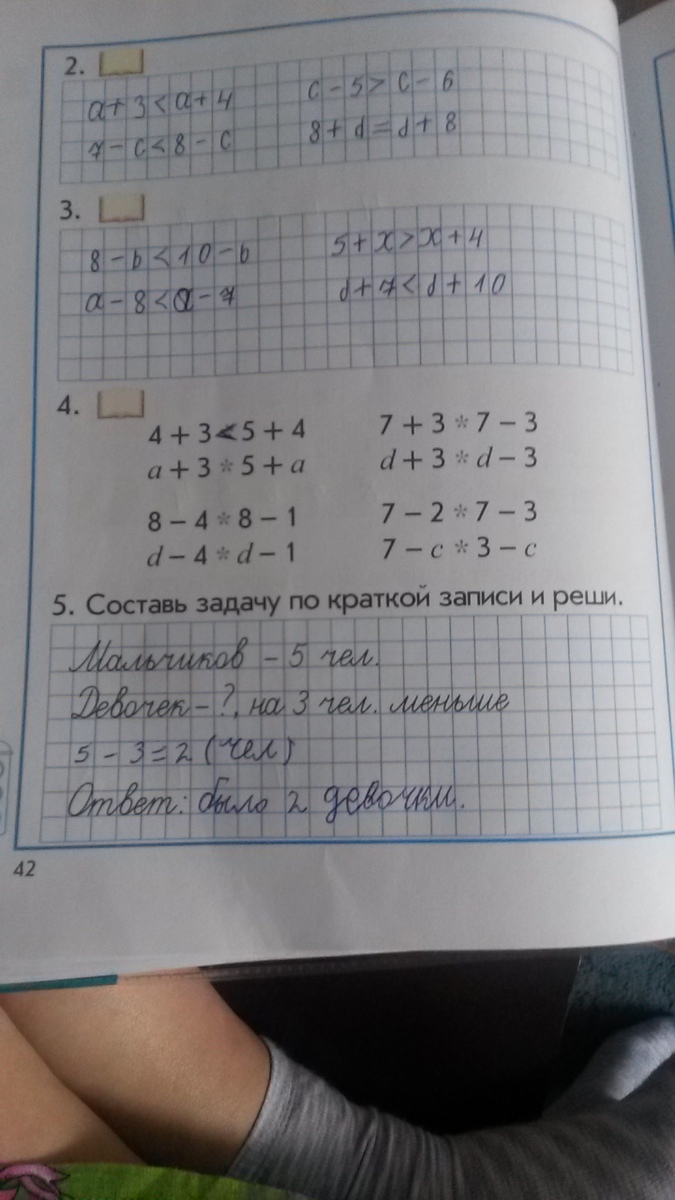 2.
a + 3 < a + 4 c - 5 > c - 6
7 - c < 8 - c 8 + d = d + 8
3.
8 - b < 10 - b 5 + x > x + 4
a - 8 < a - 7 d + 7 < d + 10
4.
4 + 3 < 5 + 4 7 + 3 * 7 - 3
a + 3 * 5 + a d + 3 * d - 3
8 - 4 * 8 - 1 7 - 2 * 7 - 3
d - 4 * d - 1 7 - c * 3 - c
5. Составь задачу по краткой записи и реши.
Мальчиков - 5 чел.
Девочек - ?, на 3 чел. меньше
5 - 3 = 2 (чел)
Ответ: было 2 девочки.
42